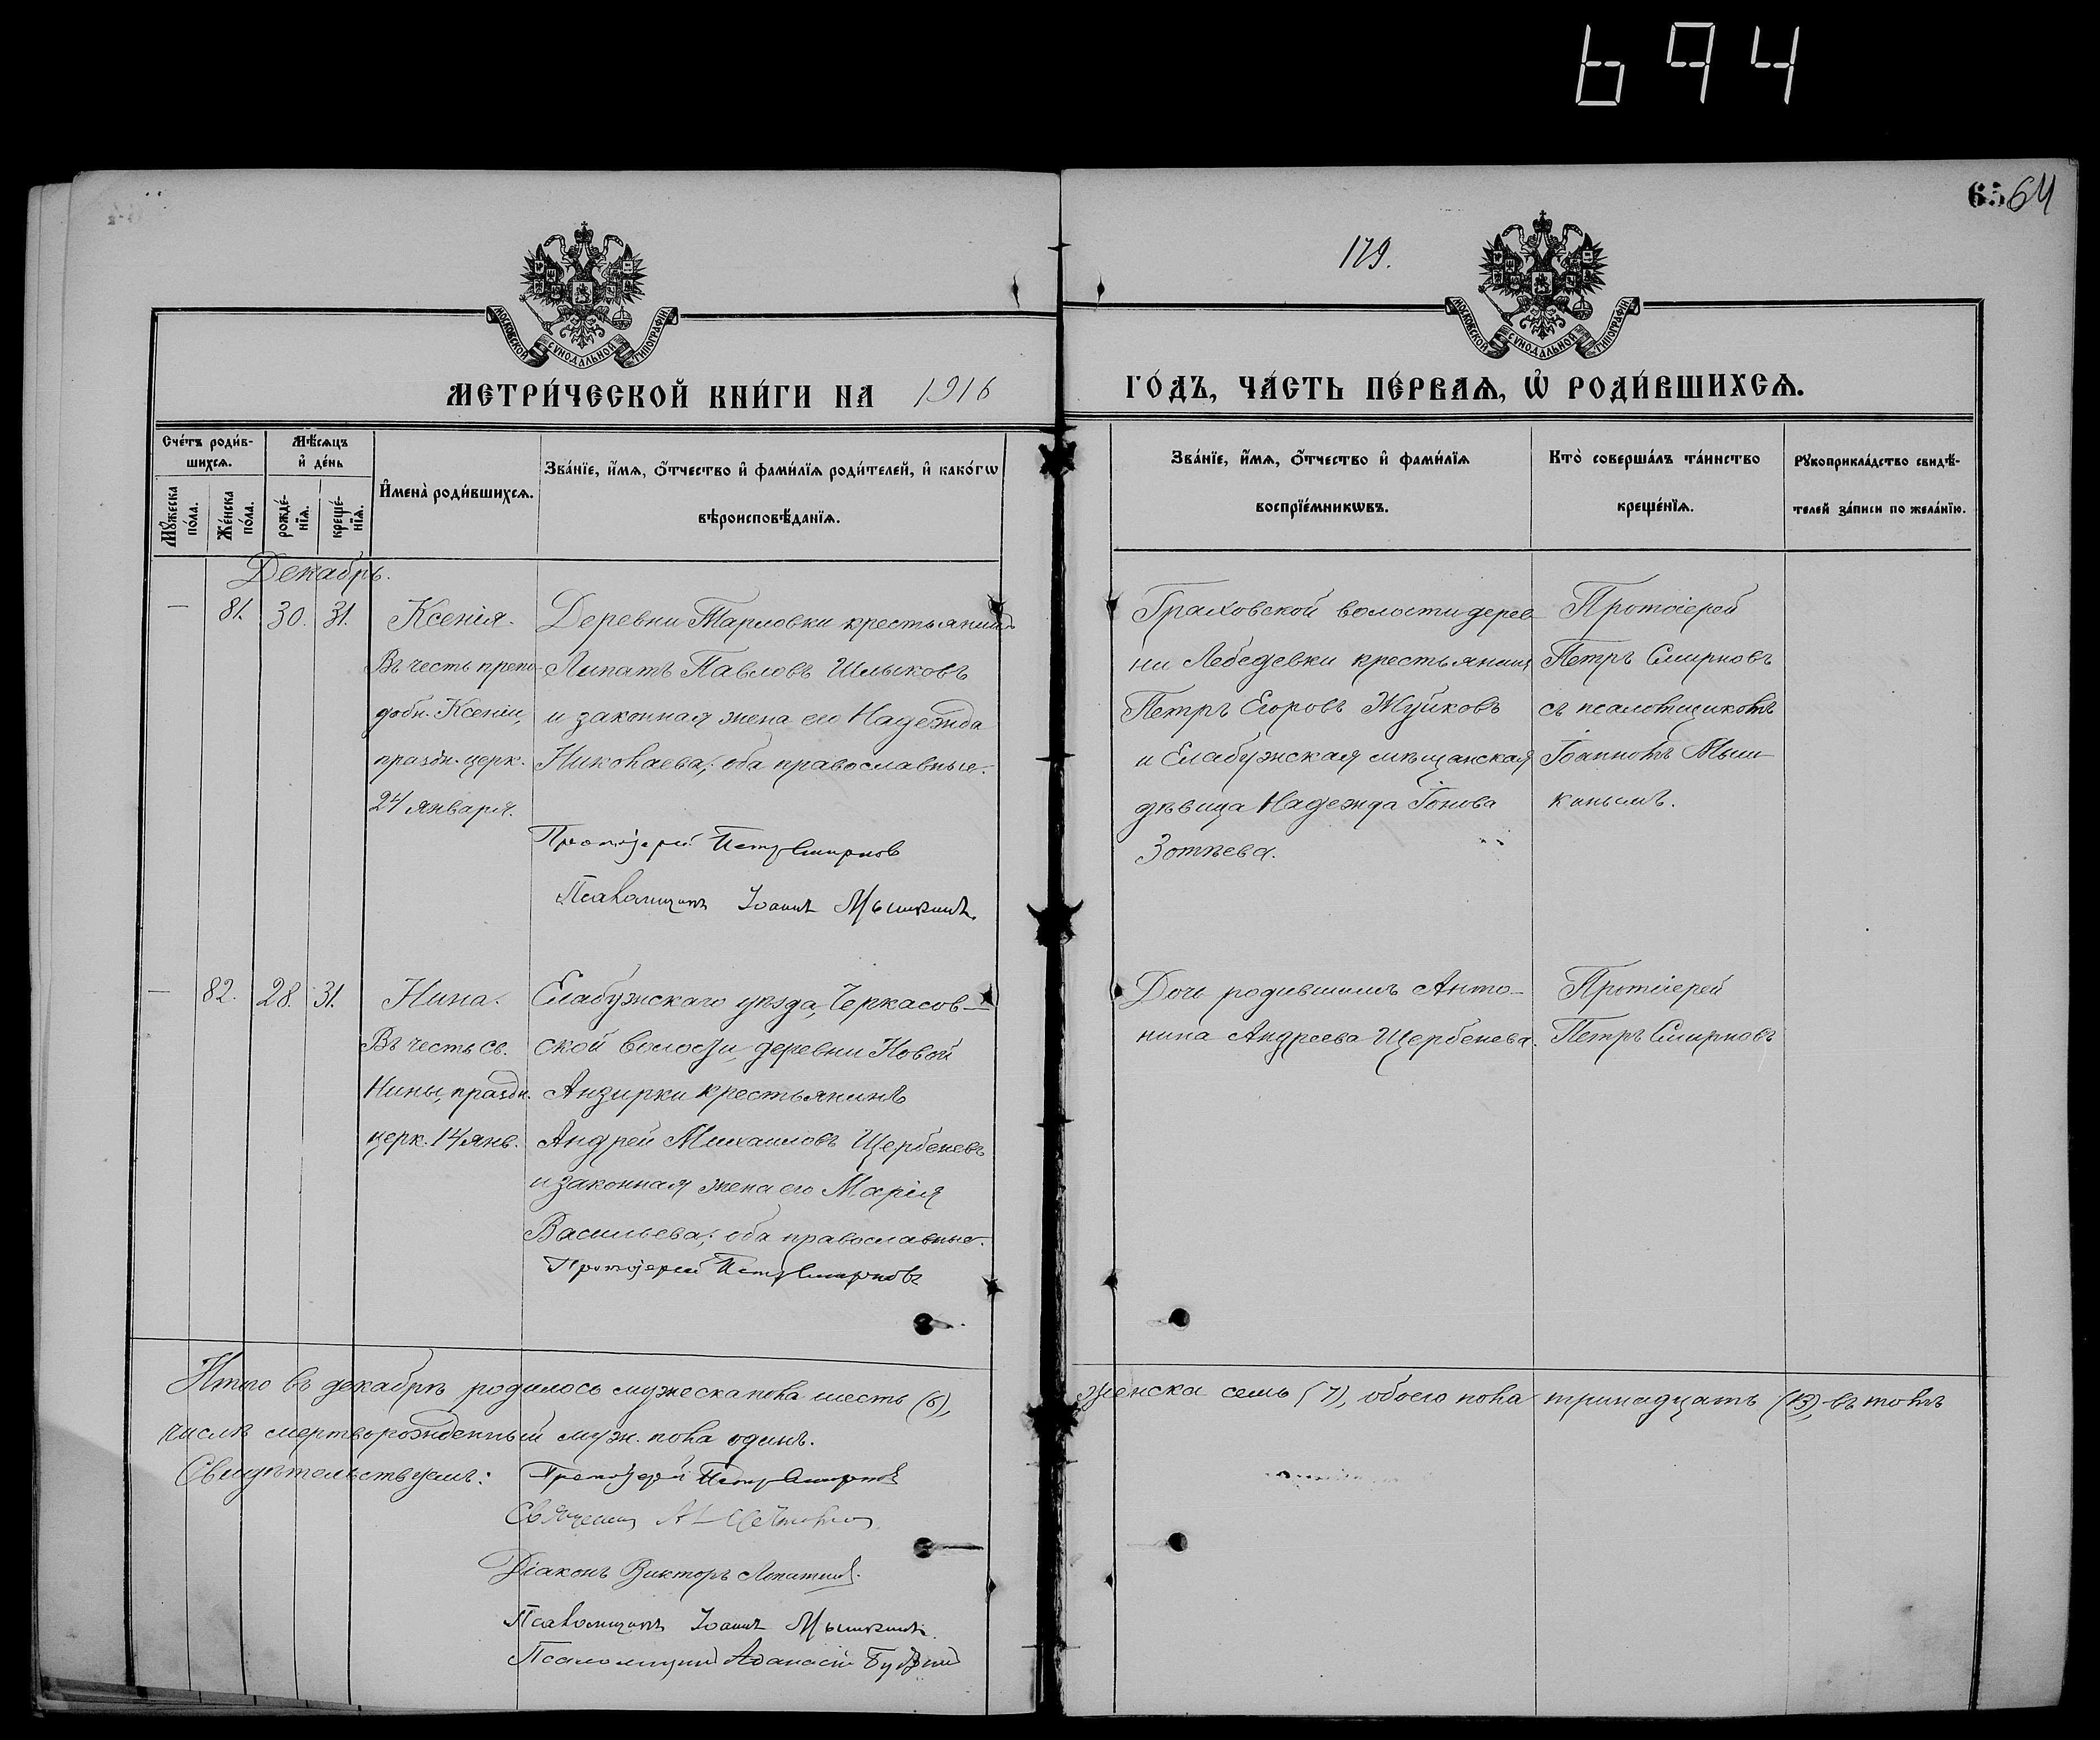 694
6564
179.
МОСКОВСКОЙ СѴНОДАЛЬНОЙ ТИПОГРАФІИ
МОСКОВСКОЙ СѴНОДАЛЬНОЙ ТИПОГРАФІИ
МЕТРИ́ЧЕСКОЙ КНИ́ГИ НА 1916 ГО́ДЪ, ЧА́СТЬ ПЕ́РВАЯ, Ѡ҆ РОДИ́ВШИХСЯ.
Сче́тъ роди́в-
шихся.
Мѣ́сяцъ
и҆ де́нь
Мꙋ́жеска
по́ла.
Же́нска
по́ла.
рожде́-
нїя.
креще́-
нїя.
И҆мена̀ роди́вшихся.
Зва́нїе, и҆́мя, ѻ҆́тчество и҆ фами́лїя роди́телей, и҆ како́гѡ
вѣроисповѣ́данїя.
Зва́нїе, и҆́мя, ѻ҆́тчество и҆ фами́лїя
воспрїе́мникѡвъ.
Кто̀ соверша́лъ та́инство
креще́нїя.
Рꙋкоприкла́дство свидѣ́-
телей за́писи по жела́нїю.
Декабрь.
— 81. 30. 31.
Ксенія.
Въ честь препо-
добн. Ксеніи,
праздн. церк.
24 января.
Деревни Тарловки крестьянинъ
Липатъ Павловъ Шлыковъ
и законная жена его Надежда
Николаева; оба православные.
Протоіерей Петръ Смирновъ
Псаломщикъ Іоаннъ Мышкинъ.
Граховской волости дерев-
ни Лебедевки крестьянинъ
Петръ Егоровъ Жуйковъ
и Елабужская мѣщанская
дѣвица Надежда Іонова
Зотѣева.
Протоіерей
Петръ Смирновъ
съ псаломщикомъ
Іоанномъ Мыш-
кинымъ.
— 82. 28. 31.
Нина.
Въ честь св.
Нины, праздн.
церк. 14 янв.
Елабужскаго уѣзда, Черкасов-
ской волости деревни Новой
Анзирки крестьянинъ
Андрей Михаиловъ Щербеневъ
и законная жена его Марія
Васильева; оба православные.
Протоіерей Петръ Смирновъ
Дочь родившимъ Анто-
нина Андреева Щербенева.
Протоіерей
Петръ Смирновъ
Итого въ декабрѣ родилось мужеска пола шесть (6), женска семь (7), обоего пола тринадцать (13), въ томъ
числѣ мертворожденный муж. пола одинъ.
Свидѣтельствуемъ: Протоіерей Петръ Смирновъ
Священникъ
Діаконъ Викторъ Лопатинъ.
Псаломщикъ Іоаннъ Мышкинъ.
Псаломщикъ Аѳанасій